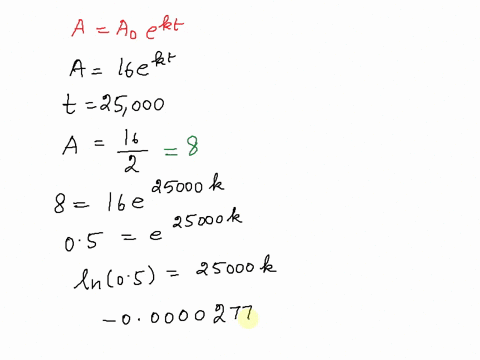 A = A₀ e^kt
A = 16e^kt
t = 25,000
A = 16/2 = 8
8 = 16e^25000k
0.5 = e^25000k
ln(0.5) = 25000k
-0.0000277